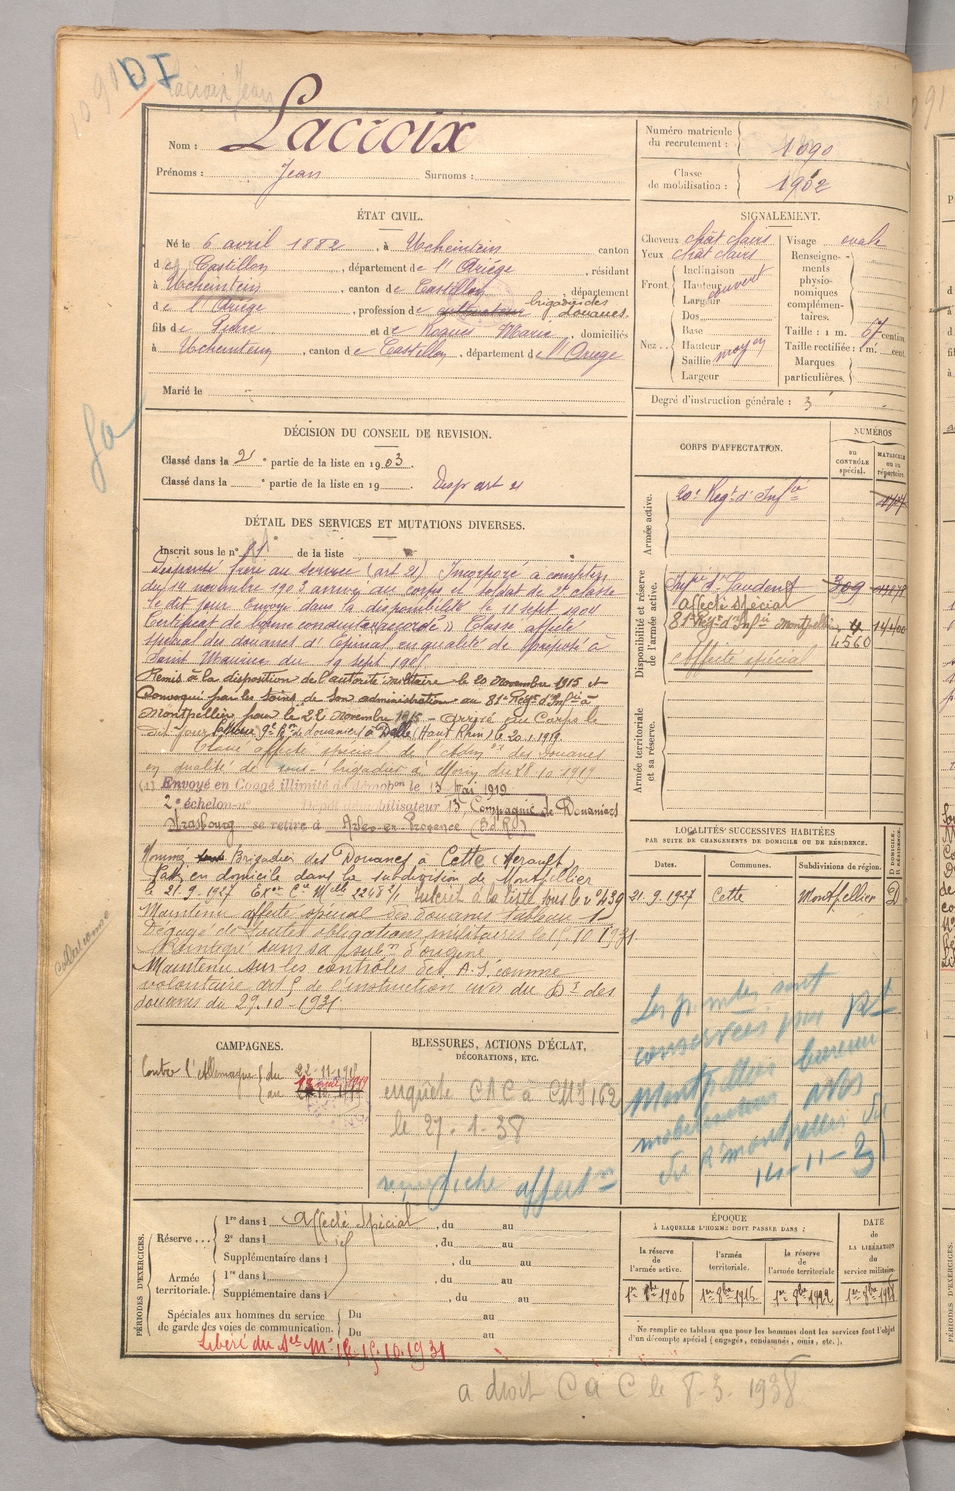 1091
DI
Lacroix Jean
Nom : Lacroix
Prénoms : Jean Surnoms :
Numéro matricule du recrutement : 1090
Classe de mobilisation : 1902
ÉTAT CIVIL.
Né le 6 avril 1882, à Uchentein canton
de Castillon, département de l'Ariège, résidant
à Uchentein, canton de Castillon, département
de l'Ariège, profession de cultivateur brigadier des douanes
fils de Pierre et de Rogues Marie, domiciliés
à Uchentein, canton de Castillon, département de l'Ariège
Marié le
SIGNALEMENT.
Cheveux chât clairs
Yeux chât clairs
Front Inclinaison
Hauteur
Largeur
couvert
Nez Dos
Base
Hauteur
Saillie moyen
Largeur
Visage ovale
Renseignements physionomiques complémentaires.
Taille : 1 m. 67 centim.
Taille rectifiée : 1 m. cent.
Marques particulières.
Degré d'instruction générale : 3
DÉCISION DU CONSEIL DE REVISION.
Classé dans la 2e partie de la liste en 1903.
Classé dans la ° partie de la liste en 19 Disp art 21
DÉTAIL DES SERVICES ET MUTATIONS DIVERSES.
Inscrit sous le n° 81 de la liste
Dispensé frère au service (art 21) Incorporé à compter
du 14 novembre 1903 arrivé au Corps et soldat de 2e classe
le dit jour Envoyé dans la disponibilité le 11 sept 1904
Certificat de bonne conduite "accordé" Classé affecté
spécial des douanes d'Epinal en qualité de préposé à
Saint Maurice du 19 sept 190
Remis à la disposition de l'autorité militaire le 20 novembre 1915 et
Convoqué par les soins de son administration au 81e Rég. d'Infie à
Montpellier pour le 22 novembre 1915 - Arrivé au Corps le
dit jour 9e Bon de douaniers à Delle (Haut Rhin) le 20.1.1919.
Classé affecté spécial de l'Adm on des Douanes
en qualité de sous-brigadier à du 18.10.1919
(1) Envoyé en Congé illimité de démobon le 13 Mai 1919
2e échelon-n° Dépôt démobilisateur 13e Compagnie de Douaniers
Strasbourg se retire à en Provence (B.d.R.)
Nommé sous Brigadier des Douanes à Cette (Hérault)
Fait en domicile dans la subdivision de Montpellier
le 21.9.1927 Inscrit à la liste sous le n° 439
Maintenu affecté spécial des douanes tableau 1
Dégagé de toutes obligations militaires le 15.10.1931
Réintégré dans sa subon d'origine
Maintenu sur les contrôles des A.S. comme
volontaire art 5 de l'instruction du Don des
douanes du 29.10.1931.
CORPS D'AFFECTATION.
NUMÉROS
DU CONTRÔLE spécial.
MATRICULE OU AU répertoire.
Armée active.
20e Regt d'Infie
Disponibilité et réserve de l'armée active.
Infie St Gaudens 309
Affecté spécial
81e Regt d'Infie Montpellier 4560
Affecté spécial
Armée territoriale et sa réserve.
LOCALITÉS SUCCESSIVES HABITÉES
PAR SUITE DE CHANGEMENTS DE DOMICILE OU DE RÉSIDENCE.
Dates. Communes. Subdivisions de région. D DOMICILE. R RÉSIDENCE.
21.9.1927 Cette Montpellier D
Les pièces sont
conservées par
Montpellier bureau
mobilisateur
de Montpellier du
14-11-31
CAMPAGNES.
Contre l'Allemagne { du 22-11-1915
au 13 mai 1919
BLESSURES, ACTIONS D'ÉCLAT,
DÉCORATIONS, ETC.
enquête CAC à CMI 162
le 27.1.38
PÉRIODES D'EXERCICES.
Réserve ... 1re dans l Affecté Spécial, du au
2e dans l , du au
Supplémentaire dans l , du au
Armée territoriale. 1re dans l , du au
Supplémentaire dans l , du au
Spéciales aux hommes du service de garde des voies de communication. Du au
Du au
Libéré du sce Mre le 15.10.1931
ÉPOQUE
À LAQUELLE L'HOMME DOIT PASSER DANS :
la réserve de l'armée active.
l'armée territoriale.
la réserve de l'armée territoriale
DATE de LA LIBÉRATION du service militaire.
1er 8bre 1906 1er 8bre 1916 1er 8bre 1922 1er 8bre 1928
Ne remplir ce tableau que pour les hommes dont les services font l'objet
d'un décompte spécial (engagés, condamnés, omis, etc.).
a droit CAC le 8-3.1938